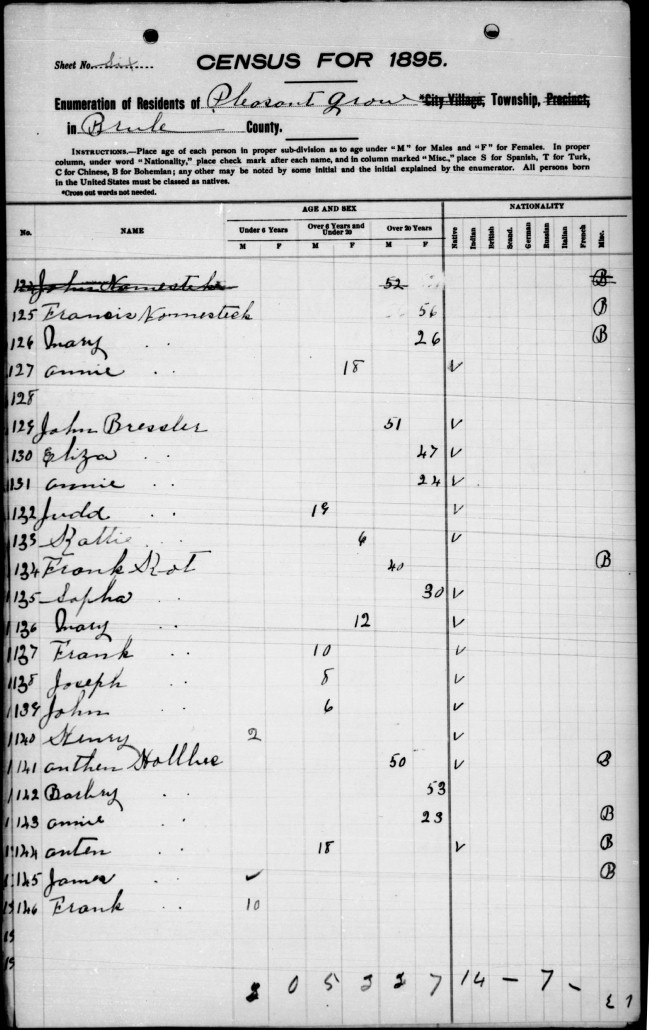 CENSUS FOR 1895.
Sheet No. Six
Enumeration of Residents of Pleasant Grove *City Village, Township, Precinct,
in Brule County.
INSTRUCTIONS.—Place age of each person in proper sub-division as to age under "M" for Males and "F" for Females. In proper
column, under word "Nationality," place check mark after each name, and in column marked "Misc.," place S for Spanish, T for Turk,
C for Chinese, B for Bohemian; any other may be noted by some initial and the initial explained by the enumerator. All persons born
in the United States must be classed as natives.
*Cross out words not needed.
AGE AND SEX NATIONALITY
No. NAME Under 6 Years Over 6 Years and Under 20 Over 20 Years Native Indian British Scand. German Russian Italian French Misc.
M F M F M F
124 John Nomesteck 52 B
125 Francis Nomesteck 56 B
126 Mary " " 26 B
127 annie " " 18 V
128
129 John Bressler 51 V
130 Eliza " " 47 V
131 annie " " 24 V
132 Judd " " 19 V
133 Kattie " " 6 V
134 Frank Kot 40 B
135 Sopha " " 30 V
136 Mary " " 12 V
137 Frank " " 10 V
138 Joseph " " 8 V
139 John " " 6 V
140 Henry " " 2 V
141 anthen 50 V B
142 Barbry " " 53
143 annie " " 23 B
144 anten " " 18 V B
145 James " " ✓ B
146 Frank " " 10
0 5 7 14 – 7 -